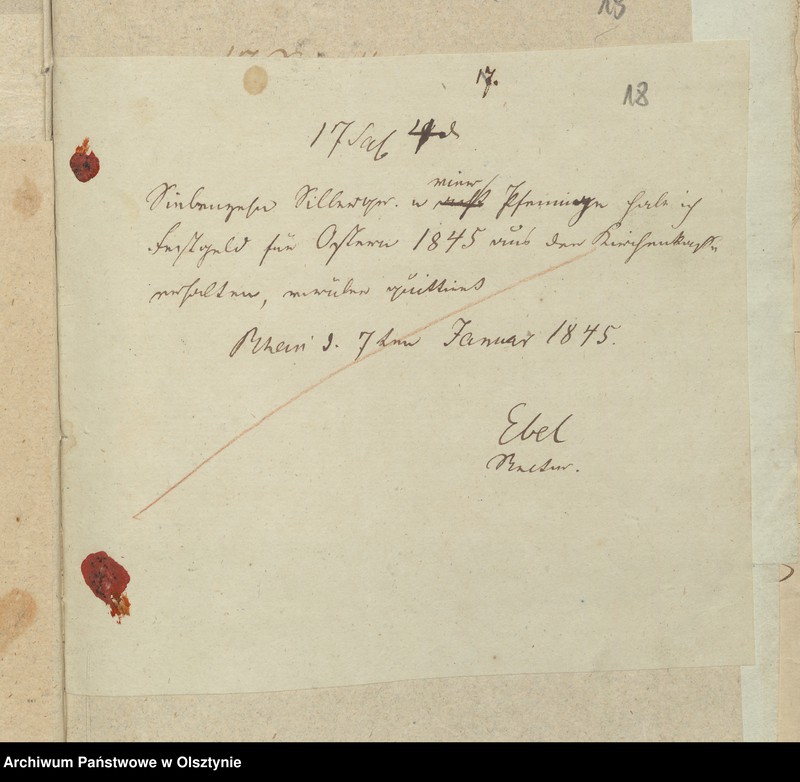 18
17.
18
17 Sgl 4 d
Siebenzehn Silbergr. u vier Pfennige habe ich
Festgeld für Ostern 1845 aus der Kirchenkasse
erhalten, worüber quittiert
Rhein d. 7ten Januar 1845.
Ebel
Rector.
Archiwum Państwowe w Olsztynie